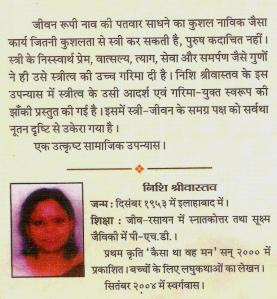 जीवन रूपी नाव की पतवार साधने का कुशल नाविक जैसा
कार्य जितनी कुशलता से स्त्री कर सकती है, पुरुष कदाचित नहीं।
स्त्री के निस्स्वार्थ प्रेम, वात्सल्य, त्याग, सेवा और समर्पण जैसे गुणों
ने ही उसे स्त्रीत्व की उच्च गरिमा दी है। निशि श्रीवास्तव के इस
उपन्यास में स्त्रीत्व के उसी आदर्श एवं गरिमा-युक्त स्वरूप की
झाँकी प्रस्तुत की गई है। इसमें स्त्री-जीवन के समग्र पक्ष को सर्वथा
नूतन दृष्टि से उकेरा गया है।
एक उत्कृष्ट सामाजिक उपन्यास।
निशि श्रीवास्तव
जन्म : दिसंबर १९५३ में इलाहाबाद में।
शिक्षा : जीव-रसायन में स्नातकोत्तर तथा सूक्ष्म
जैविकी में पी-एच.डी.।
प्रथम कृति 'कैसा था वह मन' सन् २००० में
प्रकाशित। बच्चों के लिए लघुकथाओं का लेखन।
सितंबर २००४ में स्वर्गवास।